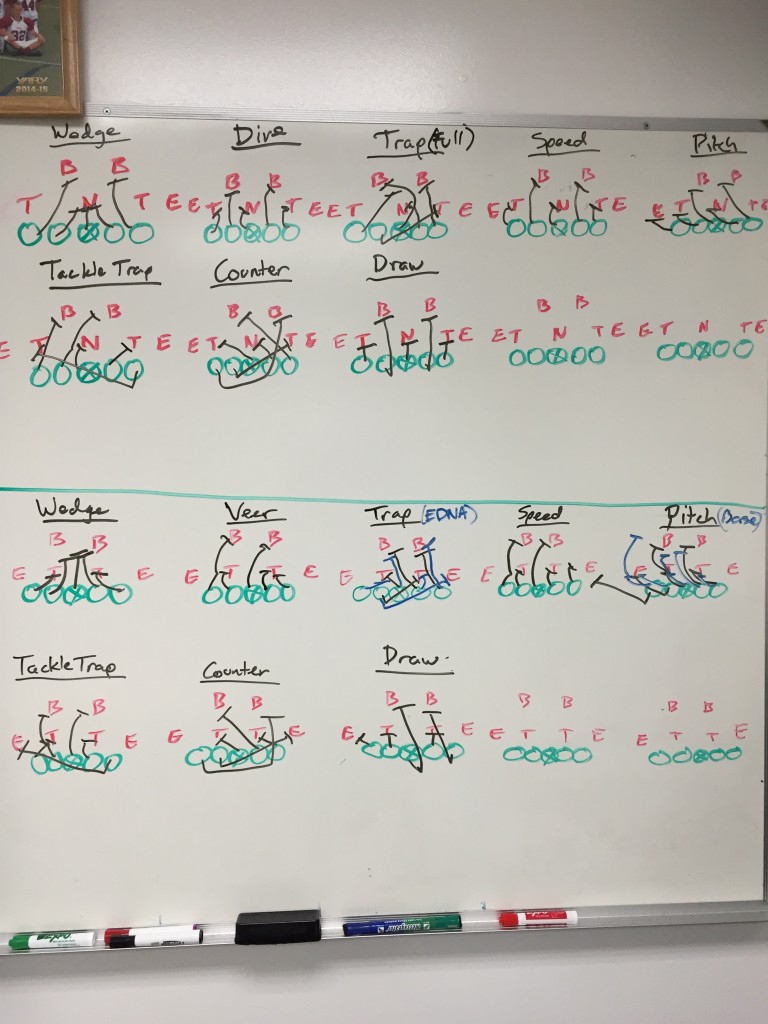 32
VARY
2014-15
Wedge Dive Trap (full) Speed Pitch
B B B B B B B B B B
T N T E E T N T E E T N T E E T N T E E T N T E
Tackle Trap Counter Draw
B B B B B B B B
E T N T E E T N T E E T N T E E T N T E E T N T E
Wedge Veer Trap (EDNA) Speed Pitch
B B B B B B B B B B
E T T E E T T E E T T E E T T E E T T E
Tackle Trap Counter Draw
B B B B B B B B B B
E T T E E T T E E T T E E T T E E T T E
EXPO